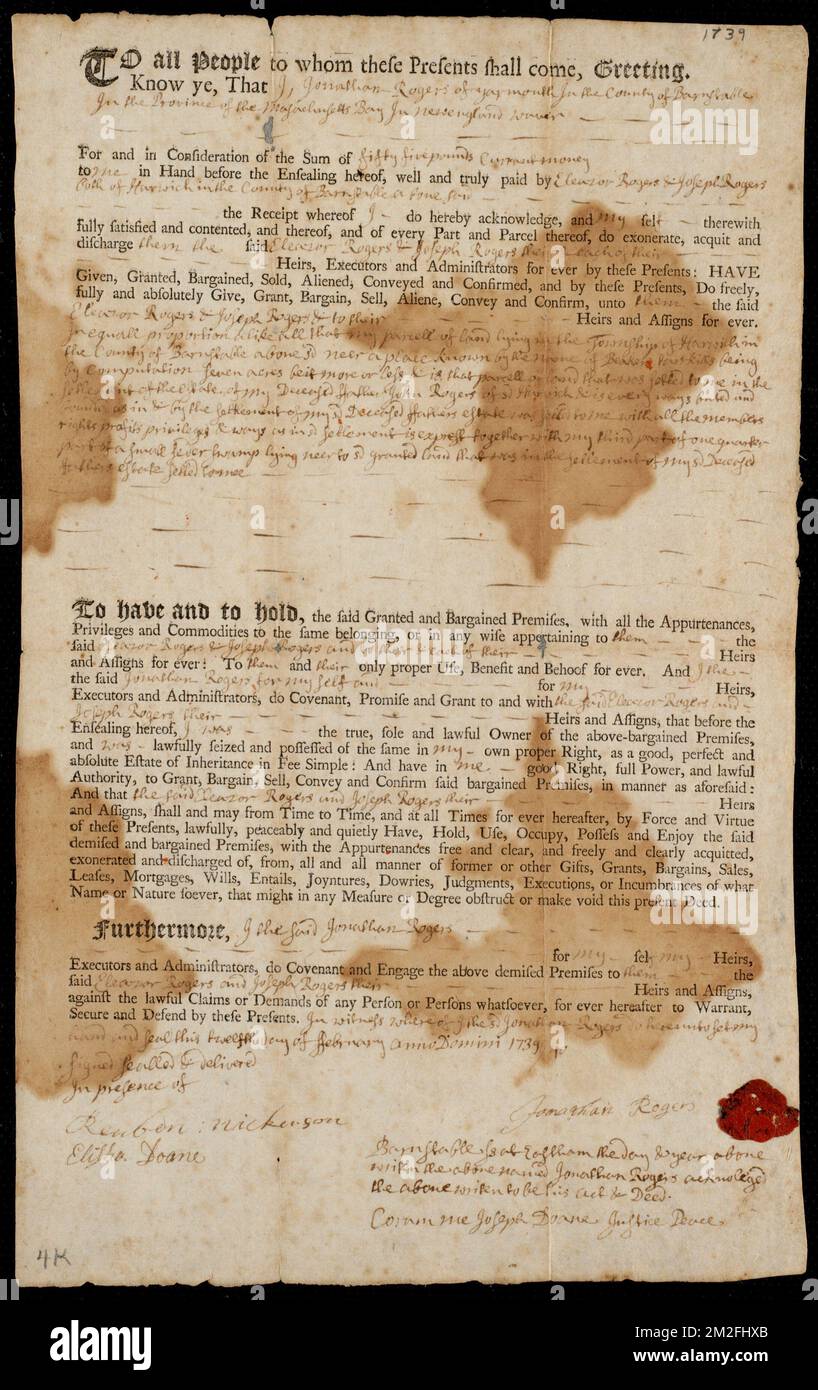 1739
TO all People to whom these Presents shall come, Greeting.
Know ye, That I, Jonathan Rogers of Yarmouth In the County of Barnstable
In the Province of the Massachusetts Bay In Newengland
For and in Consideration of the Sum of fifty five pounds Current money
to me in Hand before the Ensealing hereof, well and truly paid by Eleazor Rogers & Joseph Rogers
both of Harwich in the County of Barnstable
the Receipt whereof I do hereby acknowledge, and my self therewith
fully satisfied and contented, and thereof, and of every Part and Parcel thereof, do exonerate, acquit and
discharge them the said Eleazor Rogers & Joseph Rogers their & each of their
Heirs, Executors and Administrators for ever by these Presents: HAVE
Given, Granted, Bargained, Sold, Aliened, Conveyed and Confirmed, and by these Presents, Do freely,
fully and absolutely Give, Grant, Bargain, Sell, Aliene, Convey and Confirm, unto them the said
Eleazor Rogers & Joseph Rogers & to their Heirs and Assigns for ever.
In equall proportion alike all that my parcell of land lying in the Township of Harwich in
the County of Barnstable above sd neer a place known by the name of being
by Computation seven acres be it more or less & is that parcell of land that was setled to me in the
settlement of the estate of my Deceased ffather John Rogers of sd Harwich & is every ways buted and
as in & by the settlement of my sd Deceased ffathers estate was setled to me with all the members
rights profits privileges & ways as in sd settlement is exprest together with my third part of one quarter
part of a small swamp lying neer to sd granted land that was in the settlement of my sd Deceased
ffathers estate setled to mee
To have and to hold, the said Granted and Bargained Premises, with all the Appurtenances,
Privileges and Commodities to the same belonging, or in any wise appertaining to them the
said Eleazor Rogers & Joseph Rogers and to their & each of their Heirs
and Assigns for ever: To them and their only proper Use, Benefit and Behoof for ever. And I the
the said Jonathan Rogers for my self and for my Heirs,
Executors and Administrators, do Covenant, Promise and Grant to and with the said Eleazor Rogers and
Joseph Rogers their Heirs and Assigns, that before the
Ensealing hereof, I was the true, sole and lawful Owner of the above-bargained Premises,
and was lawfully seized and possessed of the same in my own proper Right, as a good, perfect and
absolute Estate of Inheritance in Fee Simple: And have in me good Right, full Power, and lawful
Authority, to Grant, Bargain, Sell, Convey and Confirm said bargained Premises, in manner as aforesaid:
And that the said Eleazor Rogers and Joseph Rogers their Heirs
and Assigns, shall and may from Time to Time, and at all Times for ever hereafter, by Force and Virtue
of these Presents, lawfully, peaceably and quietly Have, Hold, Use, Occupy, Possess and Enjoy the said
demised and bargained Premises, with the Appurtenances free and clear, and freely and clearly acquitted,
exonerated and discharged of, from, all and all manner of former or other Gifts, Grants, Bargains, Sales,
Leases, Mortgages, Wills, Entails, Joyntures, Dowries, Judgments, Executions, or Incumbrances of what
Name or Nature soever, that might in any Measure or Degree obstruct or make void this present Deed.
Furthermore, I the said Jonathan Rogers
for my self my Heirs,
Executors and Administrators, do Covenant and Engage the above demised Premises to them the
said Eleazor Rogers and Joseph Rogers their Heirs and Assigns,
against the lawful Claims or Demands of any Person or Persons whatsoever, for ever hereafter to Warrant,
Secure and Defend by these Presents. In witness whereof I the sd Jonathan Rogers do hereunto set my
hand and seal this twelfth day of ffebruary Anno Domini 1739
Signed sealled & delivered
In presence of
Jonathan Rogers
Reuben : Nickerson
Elisha Doane
Barnstable ss at Eastham the day & year above
writen the above named Jonathan Rogers acknoleged
the above writen to be his act & Deed.
Coram me Joseph Doane Justice Peace
4K
alamy
Image ID: 2M2FHXB
www.alamy.com